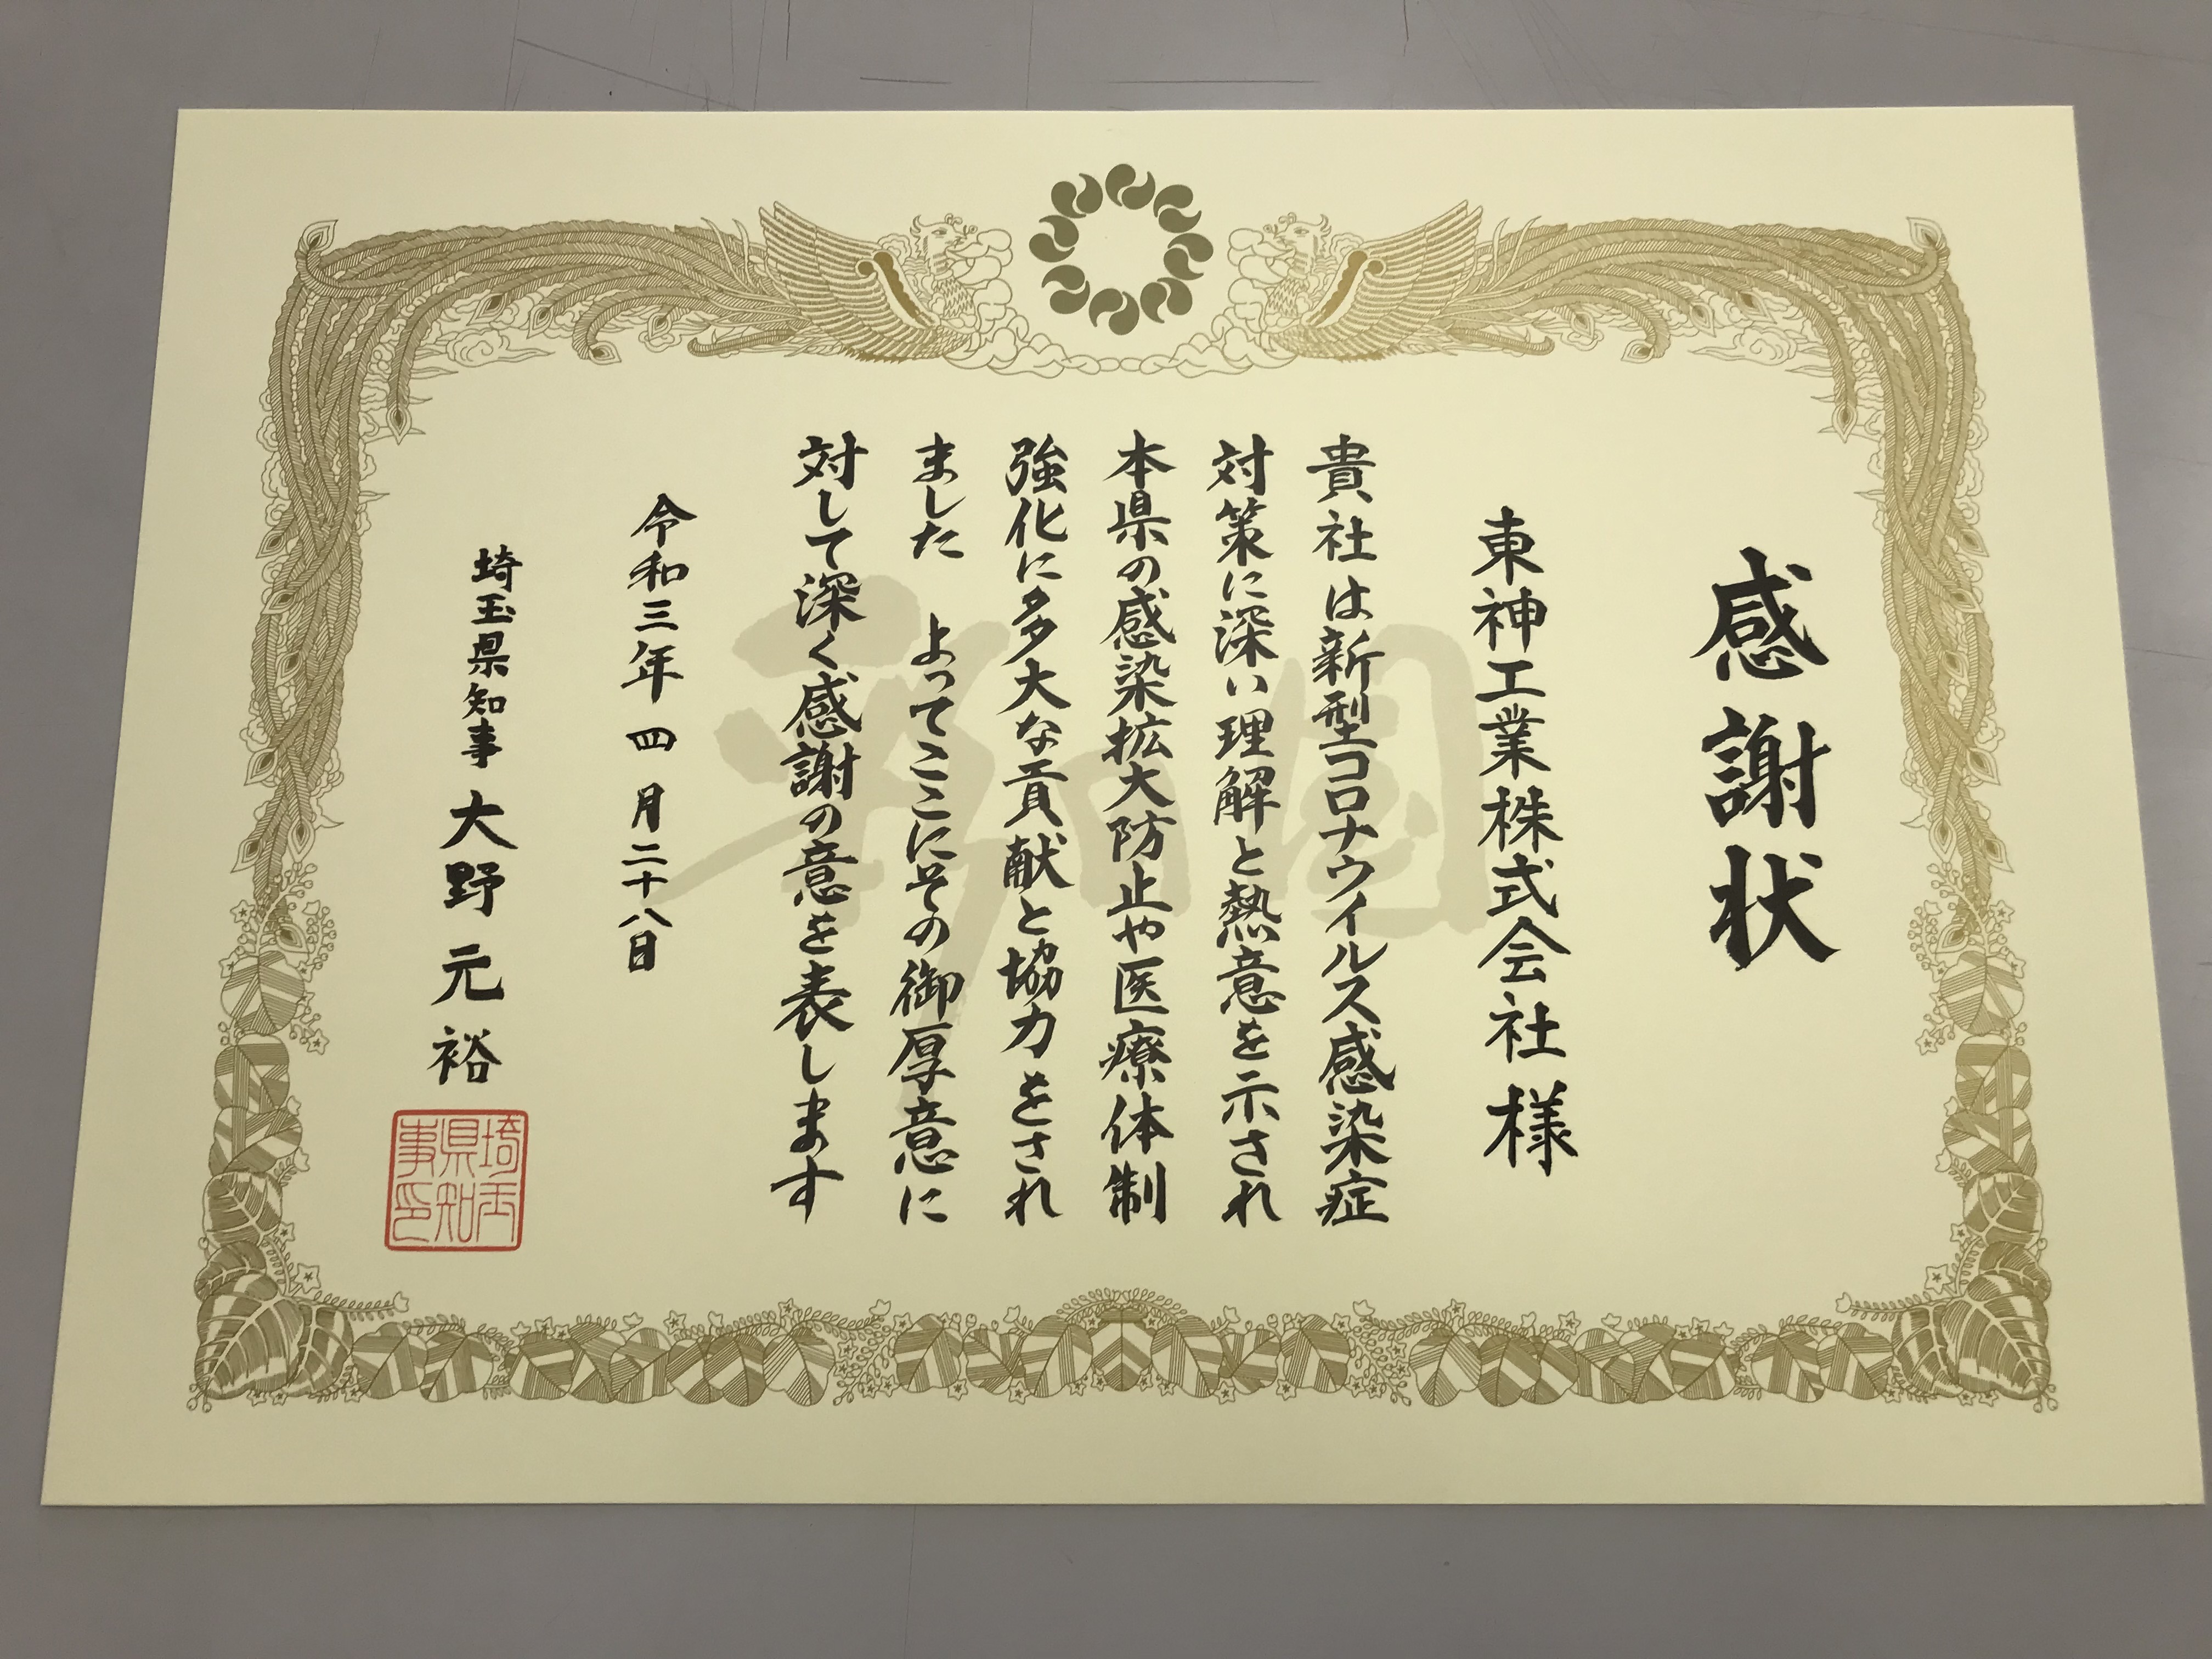 感謝状
東神工業株式会社様
貴社は新型コロナウイルス感染症
対策に深い理解と熱意を示され
本県の感染拡大防止や医療体制
強化に多大な貢献と協力をされ
ました　よってここにその御厚意に
対して深く感謝の意を表します
令和三年四月二十八日
埼玉県知事 大野元裕
埼玉
県知
事印
彩の国